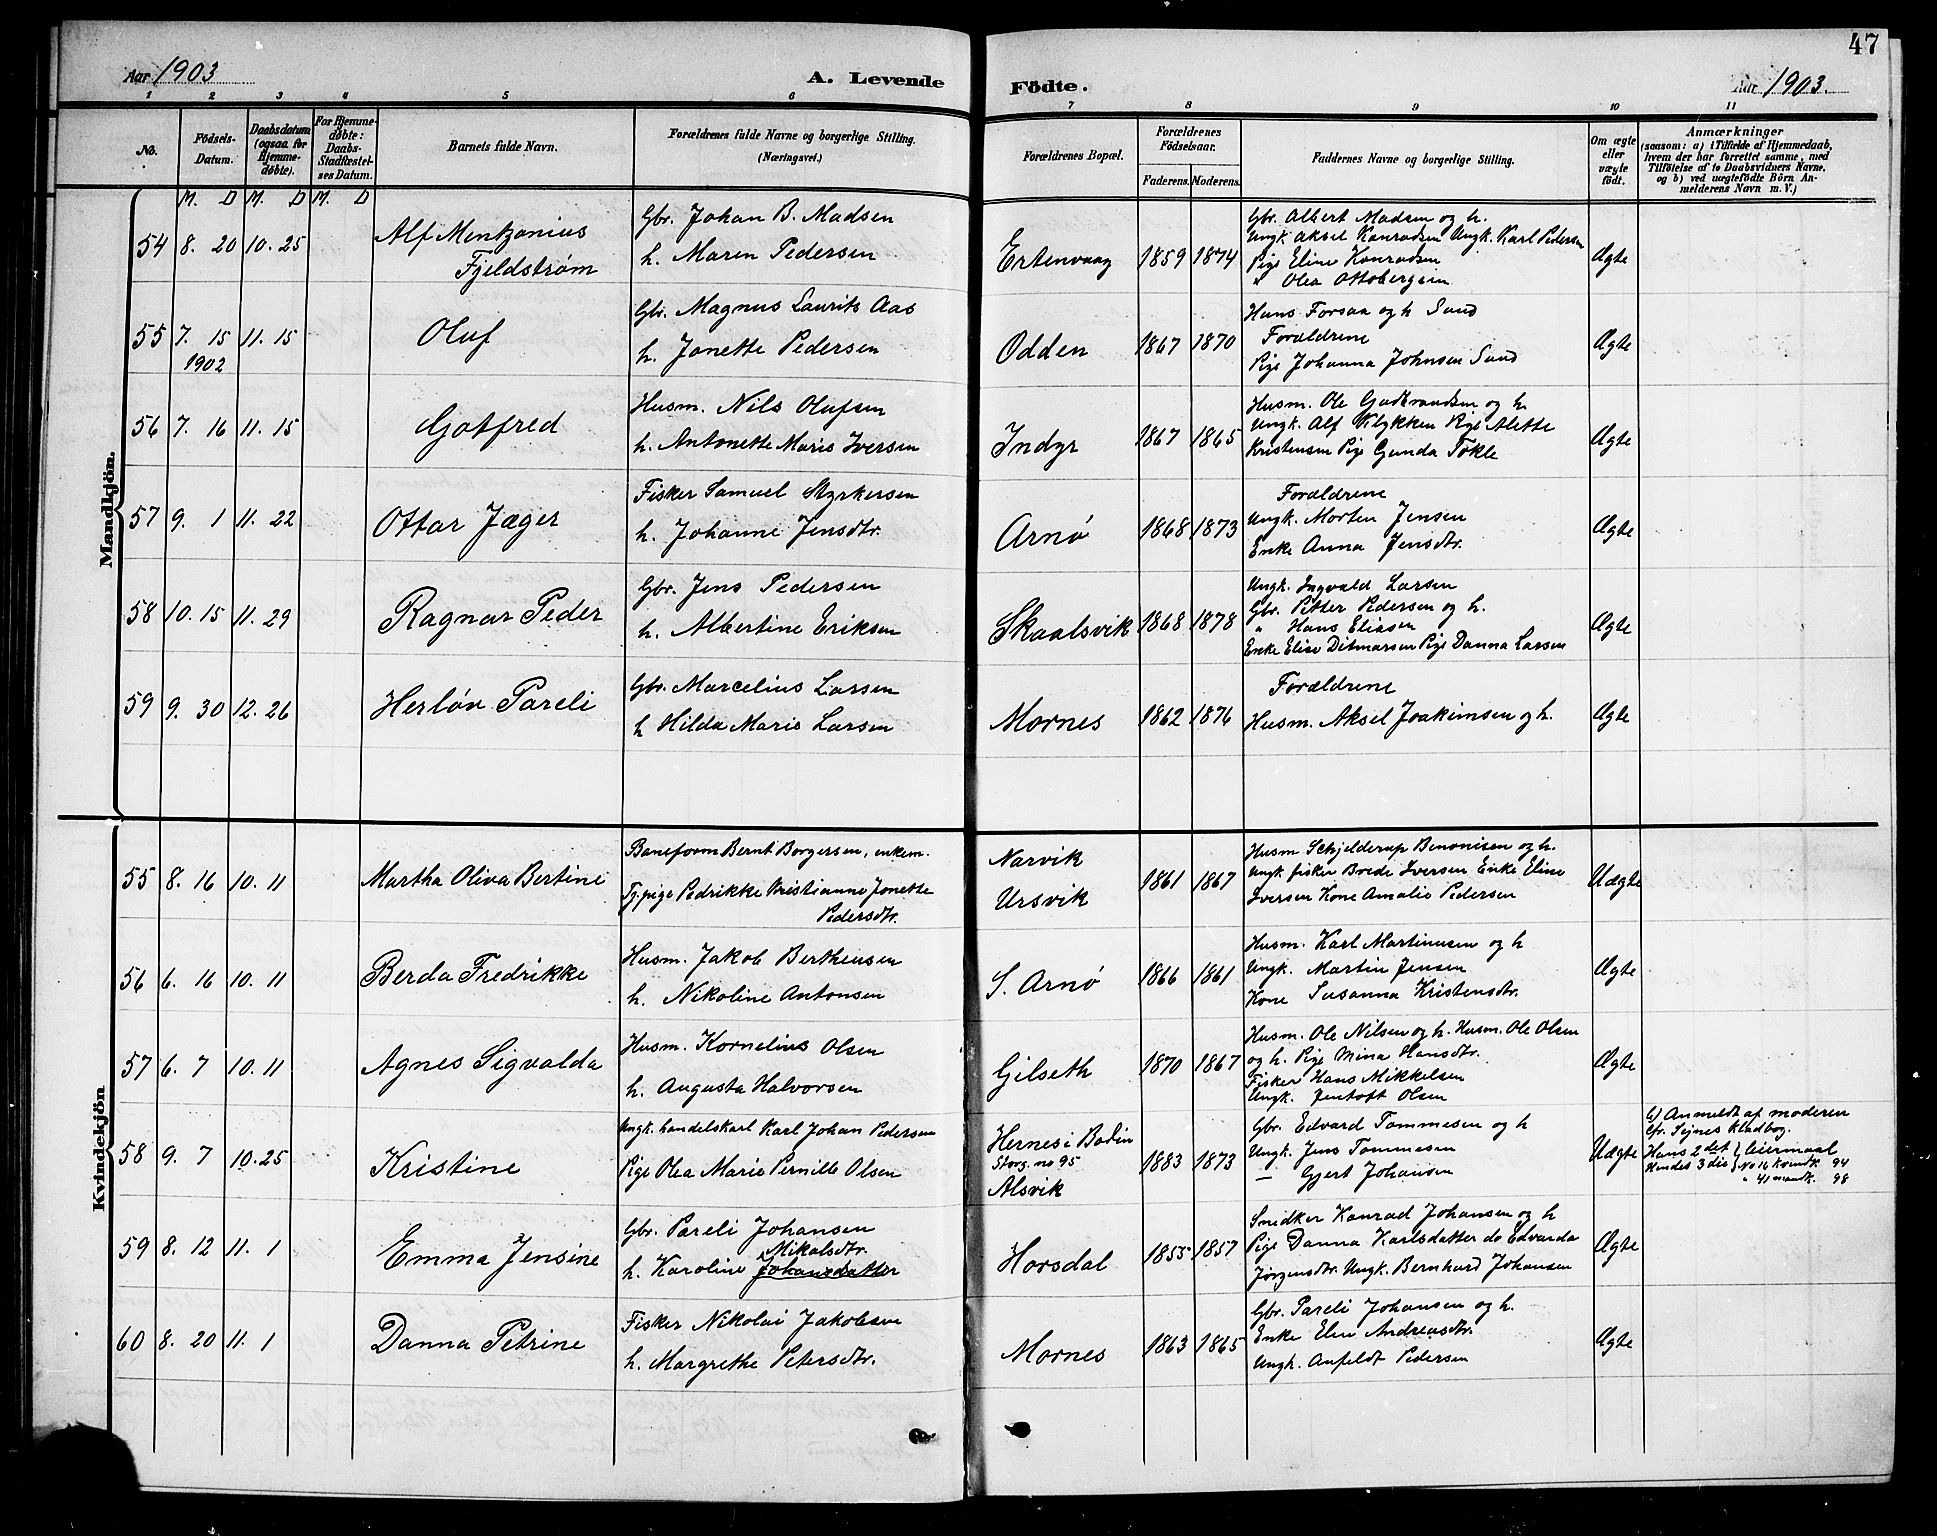 47
Aar 1903
A. Levende
Födte.
Aar 1903.
1 2 3 4 5 6 7 8 9 10 11
No.
Födsels-
Datum.
Daabsdatum
(ogsaa for
Hjemme-
døbte).
For Hjemme-
døbte:
Daabs-
Stadfæstel-
ses Datum.
Barnets fulde Navn.
Forældrenes fulde Navne og borgerlige Stilling.
(Næringsvei.)
Forældrenes Bopæl.
Forældrenes
Födselsaar.
Faderens. Moderens.
Faddernes Navne og borgerlig Stilling.
Om ægte
eller
uægte
født.
Anmærkninger
(saasom: a) i Tilfælde af Hjemmedaab,
hvem der har forrettet samme, med
Tilföielse af to Daabsvidners Navne,
og b) ved uægtefödte Börn An-
melderens Navn m. V.)
M. D M. D M. D
Mandkjön.
54 8. 20 10. 25
Alf Mentzonius
Fjeldstrøm
Gbr. Johan B. Madsen
h. Maren Pedersen
Ertenvaag 1859 1874
Gbr. Albert Madsen og h.
Ungk. Aksel Konradsen Ungk. Karl Pedersen
Pige Eline Konradsen
" Olea Ottobergsen
Ægte
55 7. 15 11. 15
1902
Oluf
Gbr. Magnus Laurits Aas
h. Jonette Pedersen
Odden 1867 1870
Hans Forsaa og h Sund
Forældrene
Pige Johanna Johnsen Sund
Ægte
56 7. 16 11. 15
Gotfred
Husm. Nils Olufsen
h. Antonette Marie Iversen
Indyr 1867 1865
Husm. Ole Gudbrandsen og h.
Ungk. Alf Klykken Pige Alette
Kristensen Pige Gunda Tokle
Ægte
57 9. 1 11. 22
Ottar Jæger
Fisker Samuel Styrkersen
h. Johanne Jensdtr.
Arnø 1868 1873
Forældrene
Ungk. Morten Jensen
Enke Anna Jensdtr.
Ægte
58 10. 15 11. 29
Ragnar Peder
Gbr. Jens Pedersen
h. Albertine Eriksen
Skaalsvik 1868 1878
Ungk. Ingvald Larsen
Gbr. Petter Pedersen og h.
" Hans Eliasen
Enke Elise Ditmarsen Pige Danna Larsen
Ægte
59 9. 30 12. 26
Herløv Pareli
Gbr. Marcelius Larsen
h Hilda Marie Larsen
Mornes 1862 1876
Forældrene
Husm. Aksel Joakimsen og h.
Ægte
Kvindekjön
55 8. 16 10. 11
Martha Oliva Bertine
Baneform Bernt Borgersen, enkem.
Tj. pige Pedrikke Kristianne Jonette
Pedersdtr.
Narvik
Ursvik
1861 1867
Husm Schjelderup Benonisen og h.
Ungk. fisker Brede Iversen Enke Eline
Iversen Kone Amalie Pedersen
Uægte
56 6. 16 10. 11
Berda Fredrikke
Husm. Jakob Bertheusen
h. Nikoline Antonsen
S. Arnø 1866 1861
Husm. Karl Martinusen og h
Ungk. Martin Jensen
Kone Susanna Kristensdtr.
Ægte
57 6. 7 10. 11
Agnes Sigvalda
Husm. Kornelius Olsen
h. Augusta Halvorsen
Gilseth 1870 1867
Husm. Ole Nilsen og h. Husm. Ole Olsen
og h. Pige Mina Hansdtr.
Fisker Hans Mikkelsen
Ungk. Jentoft Olsen
Ægte
58 9. 7 10. 25
Kristine
Ungk. handelskarl Karl Johan Pedersen
Pige Olea Marie Pernille Olsen
Hernes i Bodin
Storg. no 95
Alsvik
1883 1873
Gbr. Edvard Tommesen og h
Ungk. Jens Tommesen
— Gjert Johansen
Uægte
b) Anmeldt af moderen
cfr. Sognes kladbog.
Hans 2 det } leiermaal
Hendes 3 die } No 16 kvindk. 94
" 41 mandk. 98
59 8. 12 11. 1
Emma Jensine
Gbr. Pareli Johansen
Mikalsdtr.
h. Karoline Johansdatter
Horsdal 1855 1857
Snedker Konrad Johansen og h
Pige Danna Karlsdatter do Edvarda
Jørgensdtr. Ungk. Bernhard Johansen
Ægte
60 8. 20 11. 1
Danna Petrine
Fisker Nikolai Jakobsen
h. Margrethe Petersdtr.
Mornes 1863 1865
Gbr. Pareli Johansen og h.
Enke Elen Andreasdtr.
Ungk. Anfeldt Pedersen
Ægte